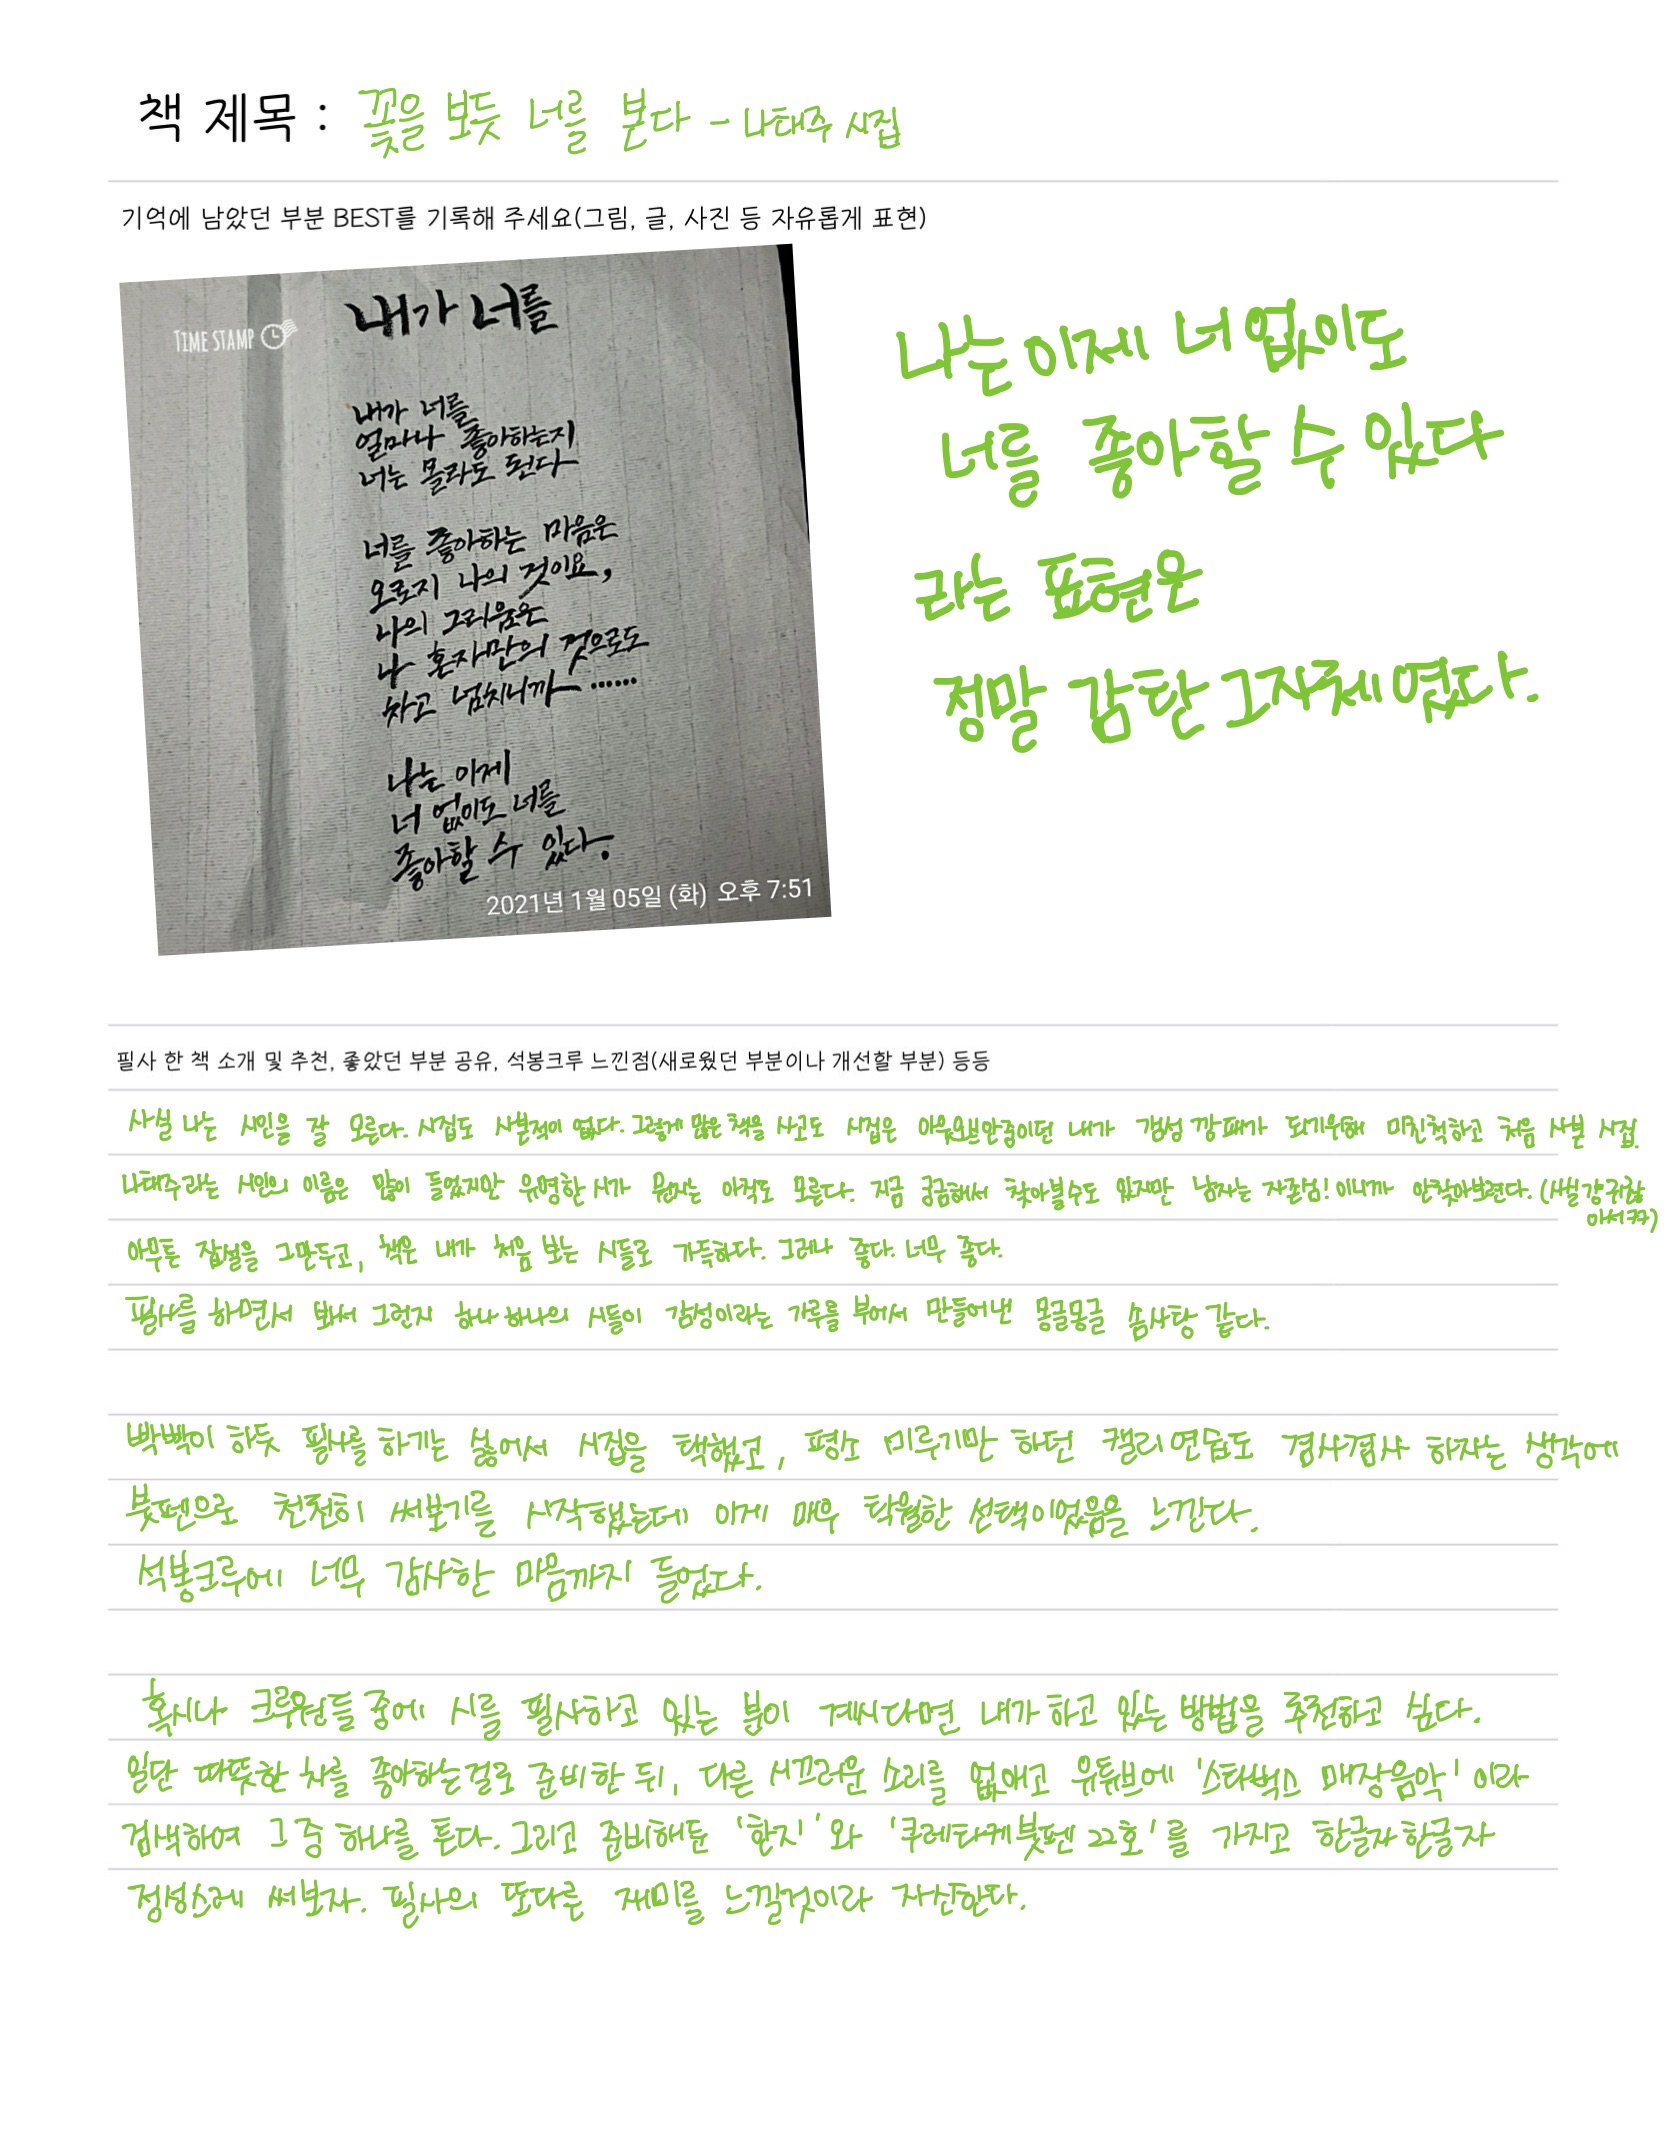 책 제목 : 꽃을 보듯 너를 본다 - 나태주 시집
기억에 남았던 부분 BEST를 기록해 주세요(그림, 글, 사진 등 자유롭게 표현)
TIME STAMP
내가 너를
내가 너를
얼마나 좋아하는지
너는 몰라도 된다
너를 좋아하는 마음은
오로지 나의 것이요,
나의 그리움은
나 혼자만의 것으로도
차고 넘치니까 ......
나는 이제
너 없이도 너를
좋아할 수 있다.
2021년 1월 05일 (화) 오후 7:51
나는 이제 너 없이도
너를 좋아할 수 있다
라는 표현은
정말 감탄 그자체였다.
필사 한 책 소개 및 추천, 좋았던 부분 공유, 석봉크루 느낀점(새로웠던 부분이나 개선할 부분) 등등
사실 나는 시인을 잘 모른다. 시집도 사본적이 없다. 그렇게 많은 책을 사고도 시집은 아웃오브안중이던 내가 감성 깡패가 되기위해 미친척하고 처음 사본 시집.
나태주라는 시인의 이름은 많이 들었지만 유명한 시가 뭔지는 아직도 모른다. 지금 궁금해서 찾아볼수도 있지만 남자는 자존심! 이니까 안찾아보련다. (사실 걍 귀찮
아서ㅋㅋ)
아무튼 잡설을 그만두고, 책은 내가 처음 보는 시들로 가득하다. 그러나 좋다. 너무 좋다.
필사를 하면서 봐서 그런지 하나하나의 시들이 감성이라는 가루를 부어서 만들어낸 몽글몽글 솜사탕 같다.
빡빡이 하듯 필사를 하기는 싫어서 시집을 택했고, 평소 미루기만 하던 캘리연습도 겸사겸사 하자는 생각에
붓펜으로 천천히 써보기를 시작했는데 이게 매우 탁월한 선택이었음을 느낀다.
석봉크루에 너무 감사한 마음까지 들었다.
혹시나 크루원들 중에 시를 필사하고 있는 분이 계시다면 내가 하고 있는 방법을 추천하고 싶다.
일단 따뜻한 차를 좋아하는걸로 준비한 뒤, 다른 시끄러운 소리를 없애고 유튜브에 '스타벅스 매장음악' 이라
검색하여 그 중 하나를 튼다. 그리고 준비해둔 '화지'와 '쿠레타케붓펜 22호'를 가지고 한글자한글자
정성스레 써보자. 필사의 또다른 재미를 느낄것이라 자신한다.